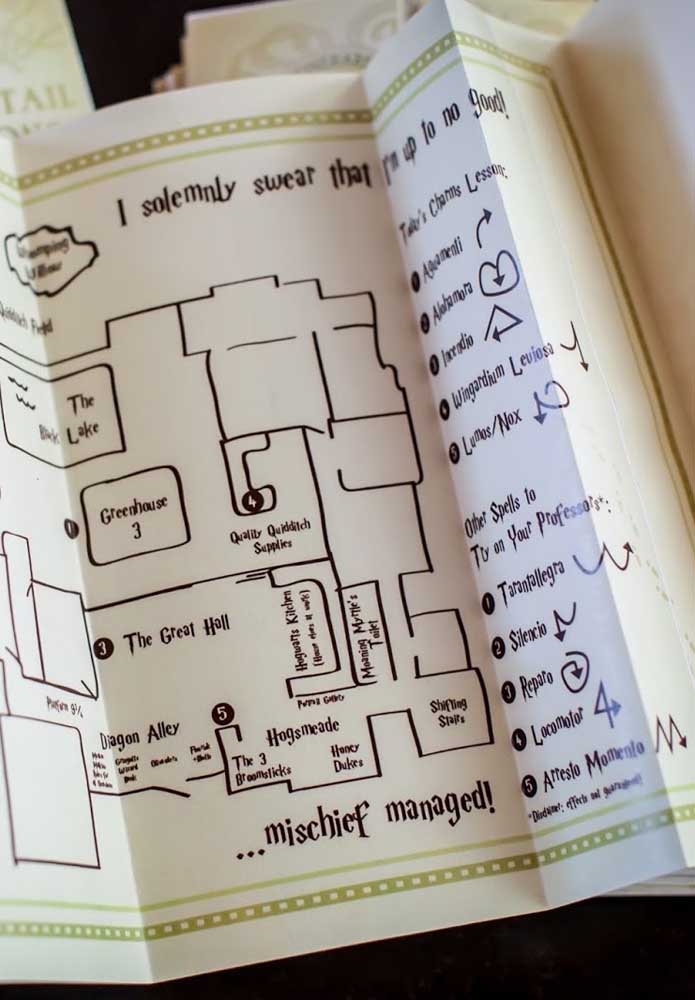 TAIL
I solemnly swear that I'm up to no good!
Whomping
Willow
Quidditch Field
The
Black Lake
1
Greenhouse
3
4
Quality Quidditch
Supplies
3 The Great Hall
Hogwarts Kitchen
Moaning Myrtle's
Toilet
Platform 9¾
Diagon Alley
5
Hogsmeade
The 3
Broomsticks
Honey
Dukes
Shifting
Stairs
...mischief managed!
Today's Charms Lesson:
1 Aguamenti
2 Alohamora
3 Incendio
4 Wingardium Leviosa
5 Lumos/Nox
Other Spells to
Try on Your Professors*:
1 Tarantallegra
2 Silencio
3 Reparo
4 Locomotor
5 Arresto Momento
*Disclaimer: effects not guaranteed!